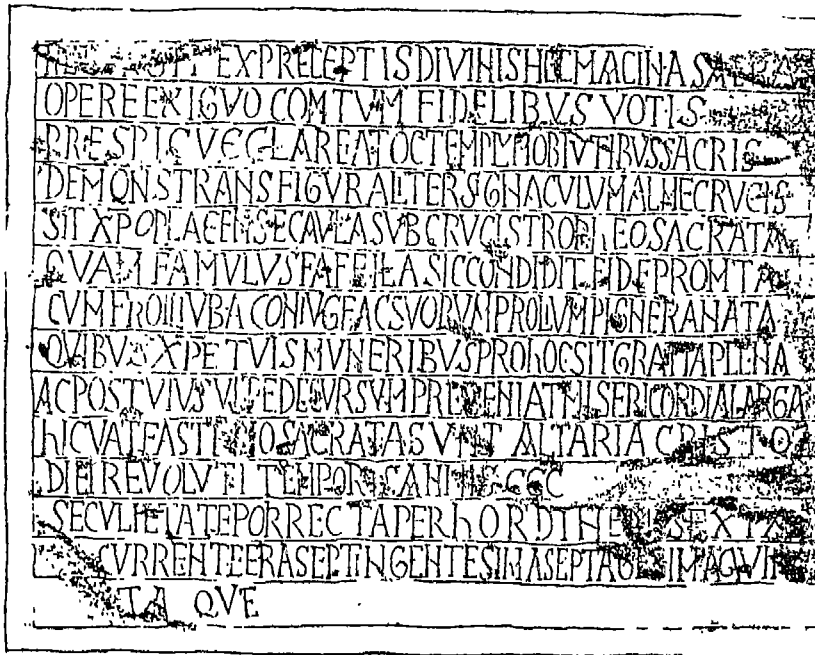 EX PRECEPTIS DIVINIS HEC MACINA SACRA
OPERE EXIGVO COMTVM FIDELIBVS VOTIS
PRESPICVE CLAREAT OC TEMPLVM OBTVTIBVS SACRIS
DEMONSTRANS FIGVRALITER SIGNACVLVM ALME CRVCIS
SIT XPO PLACENS EC AVLA SVB CRVCIS TROPhEO SACRATA
QVAM FAMVLVS FAFFILA SIC CONDIDIT FIDE PROMTA
CVM FROILIVBA CONIVGE AC SVORVM PROLIVM PIGNERA NATA
QVIBVS XPE TVIS MVNERIBVS PRO hOC SIT GRATIA PLENA
AC POST VIVS VITE DECVRSVM PREVENIAT MISERICORDIA LARGA
hIC VATE SACRATA SVNT ALTARIA CRISTO
DIEI REVOLVTI TEMPORIS ANNIS CCC
SECVLI ETATE PORRECTA PER hORDINEM SEXTA
CVRRENTE ERA SEPTINGENTESIMA SEPTAGESIMAQVIN
TA QVE